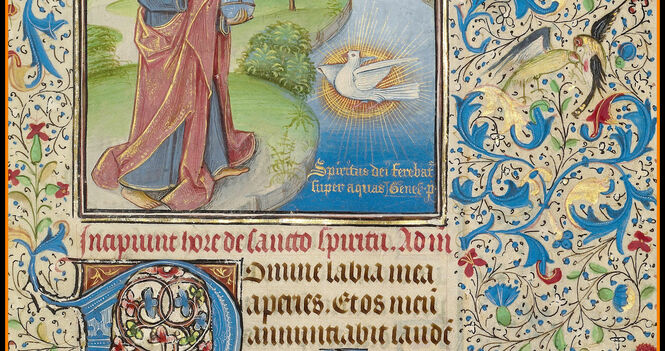 Spiritus dei ferebat
super aquas Genes. p.
Incipiunt hore de sancto spiritu. Ad m
Domine labia mea
aperies. Et os meū
annuntiabit laudē